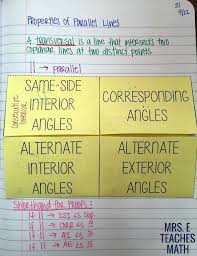 51
9/22
Properties of Parallel Lines
A transversal is a line that intersects two
coplanar lines at two distinct points.
|| → parallel
SAME-SIDE
INTERIOR
ANGLES
consecutive
interior
CORRESPONDING
ANGLES
ALTERNATE
INTERIOR
ANGLES
ALTERNATE
EXTERIOR
ANGLES
Shorthand for Proofs:
If || → SSI ∠s Sup.
If || → CORR ∠s ≅
If || → AI ∠s ≅
If || → AE ∠s ≅
MRS. E
TEACHES
MATH